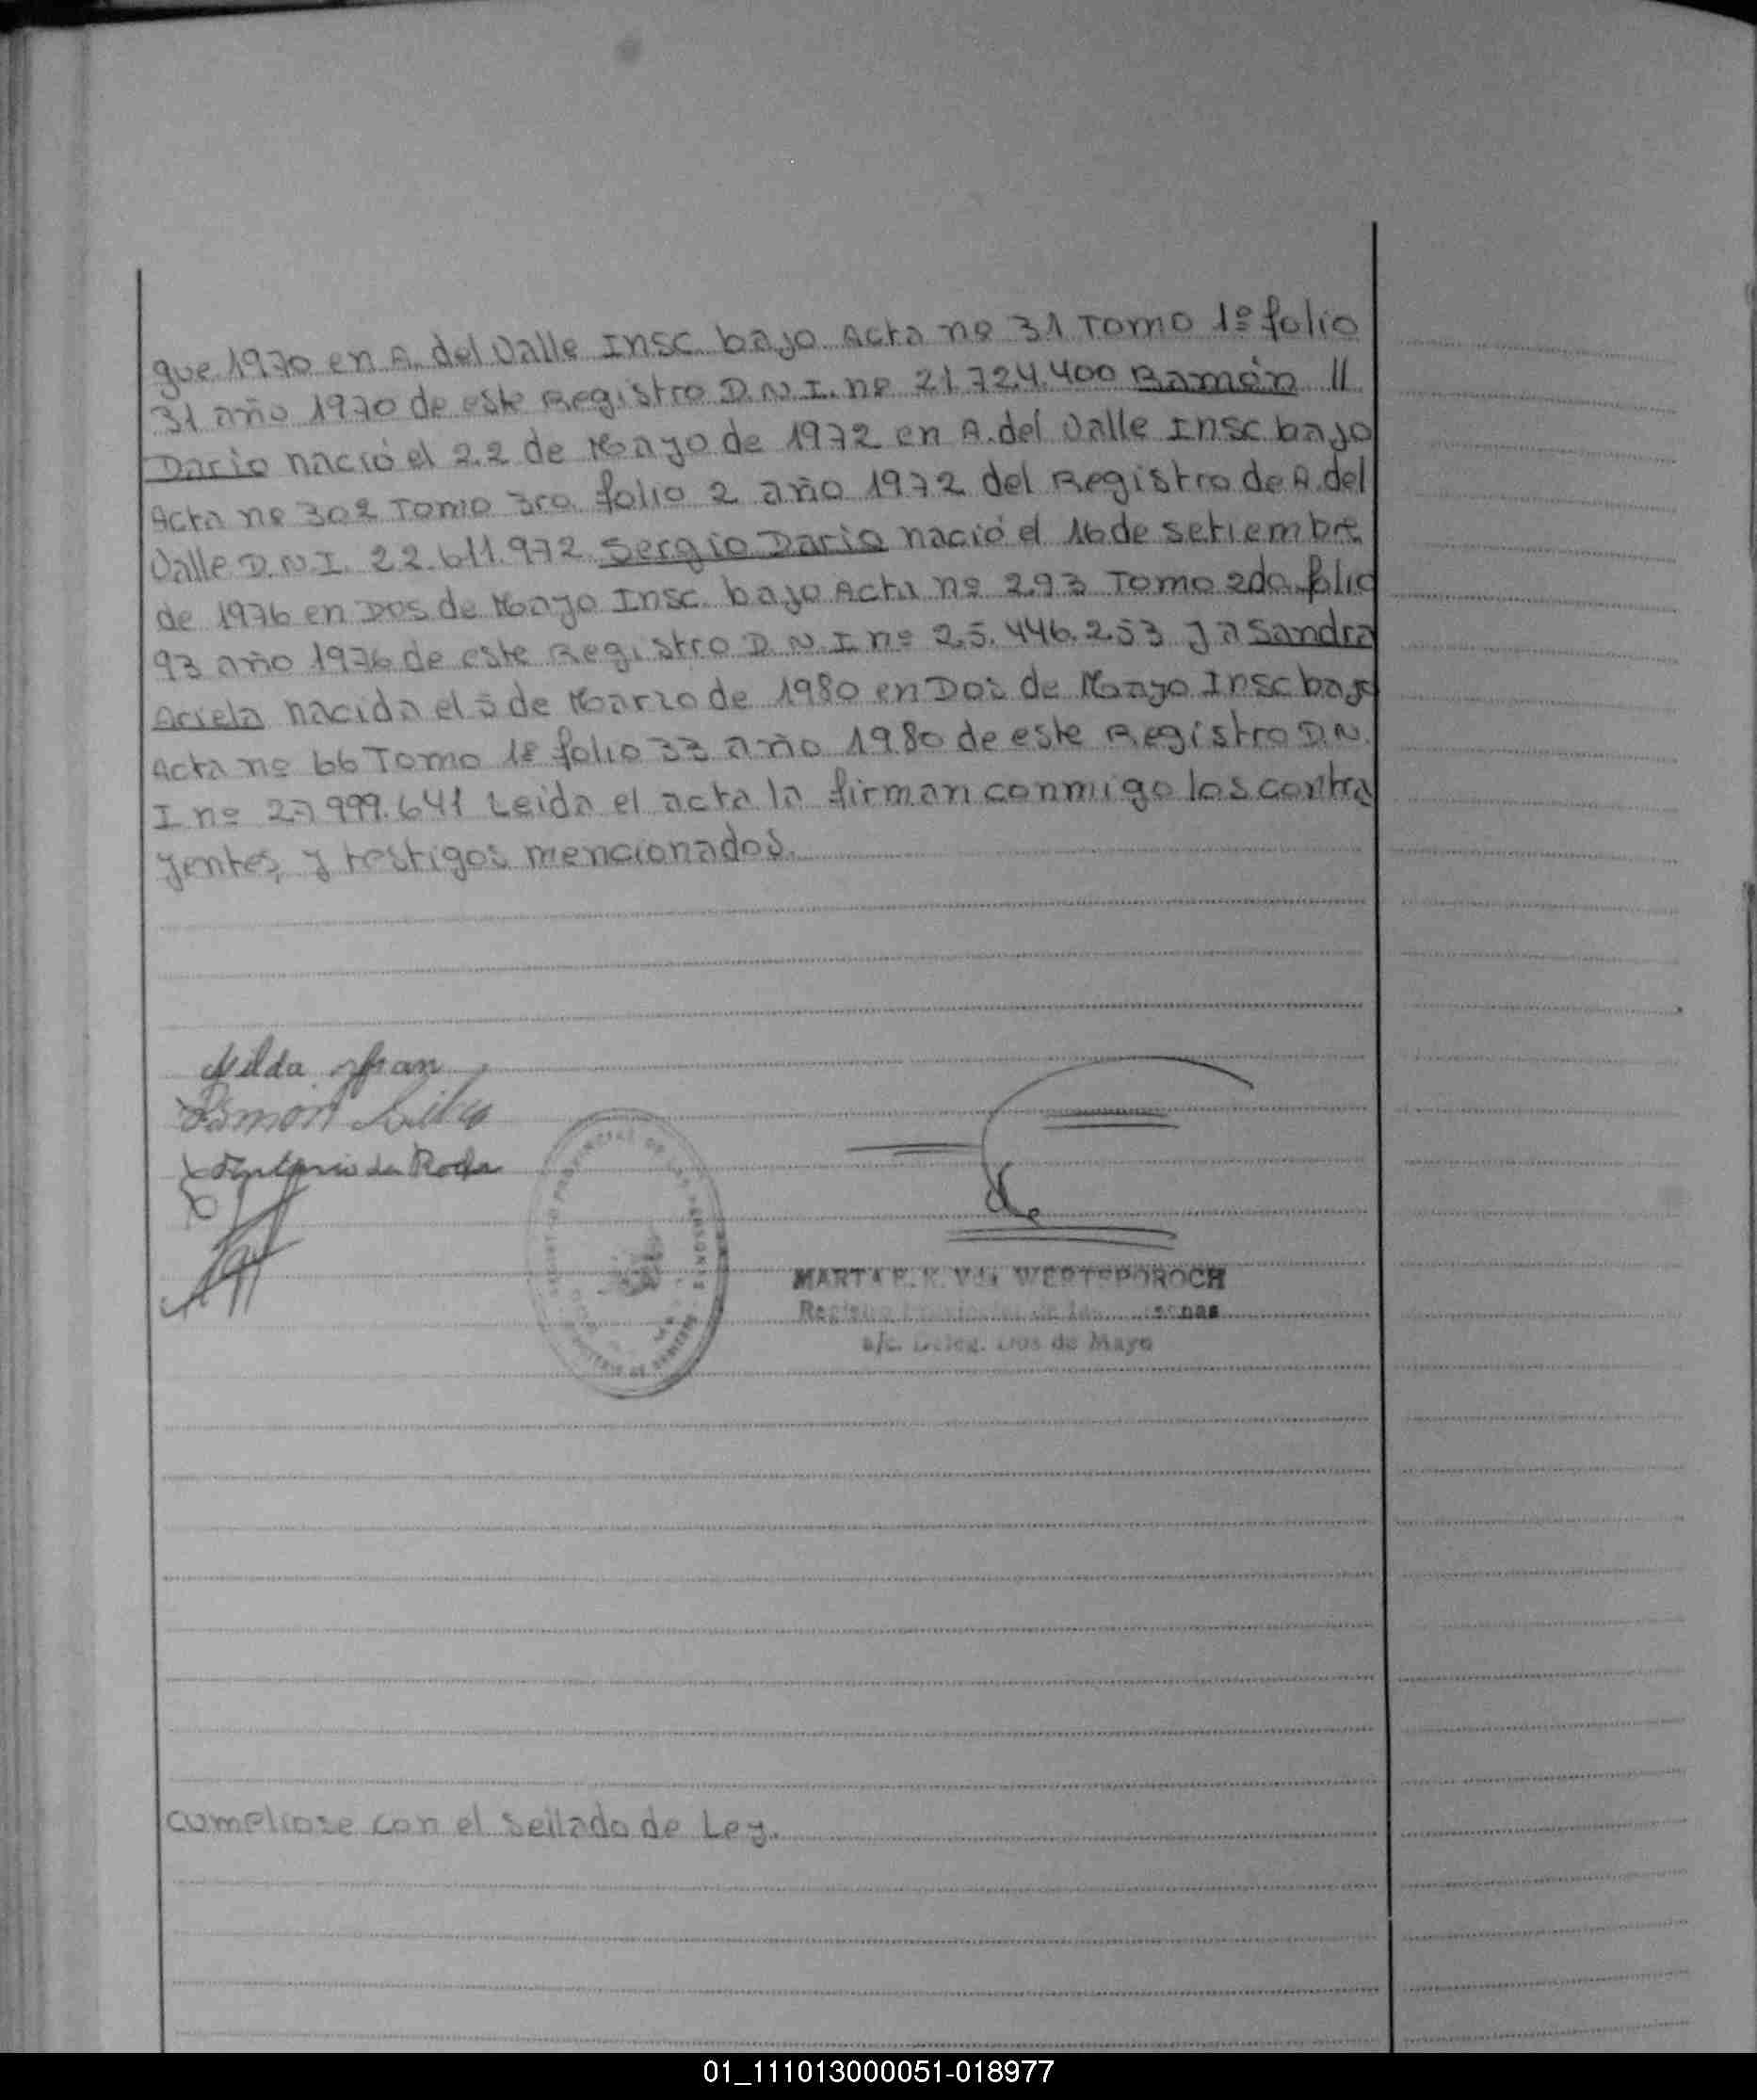 que 1970 en A. del Valle Insc. bajo Acta nº 31 Tomo 1º folio
31 año 1970 de este Registro D.N.I. nº 21.724.400 Ramón //
Dario nació el 22 de Mayo de 1972 en A. del Valle Insc bajo
Acta nº 302 Tomo 3ro. folio 2 año 1972 del Registro de A. del
Valle D.N.I. 22.611.972 Sergio Dario nació el 16 de setiembre
de 1976 en Dos de Mayo Insc. bajo Acta nº 293 Tomo 2do folio
93 año 1976 de este Registro D.N.I nº 25.446.253 y a Sandra
Ariela nacida el 5 de Marzo de 1980 en Dos de Mayo Insc bajo
Acta nº 66 Tomo 1º folio 33 año 1980 de este Registro D.N.
I nº 27.999.641 Leida el acta la firman conmigo los contra
yentes, y testigos mencionados.
Nilda
Ramón Silva
Antonio da Rosa
MARTA E. K. Vda WERTEPOROCH
Registro Provincial de las Personas
a/c. Deleg. Dos de Mayo
cumpliose con el sellado de Ley.
01_111013000051-018977